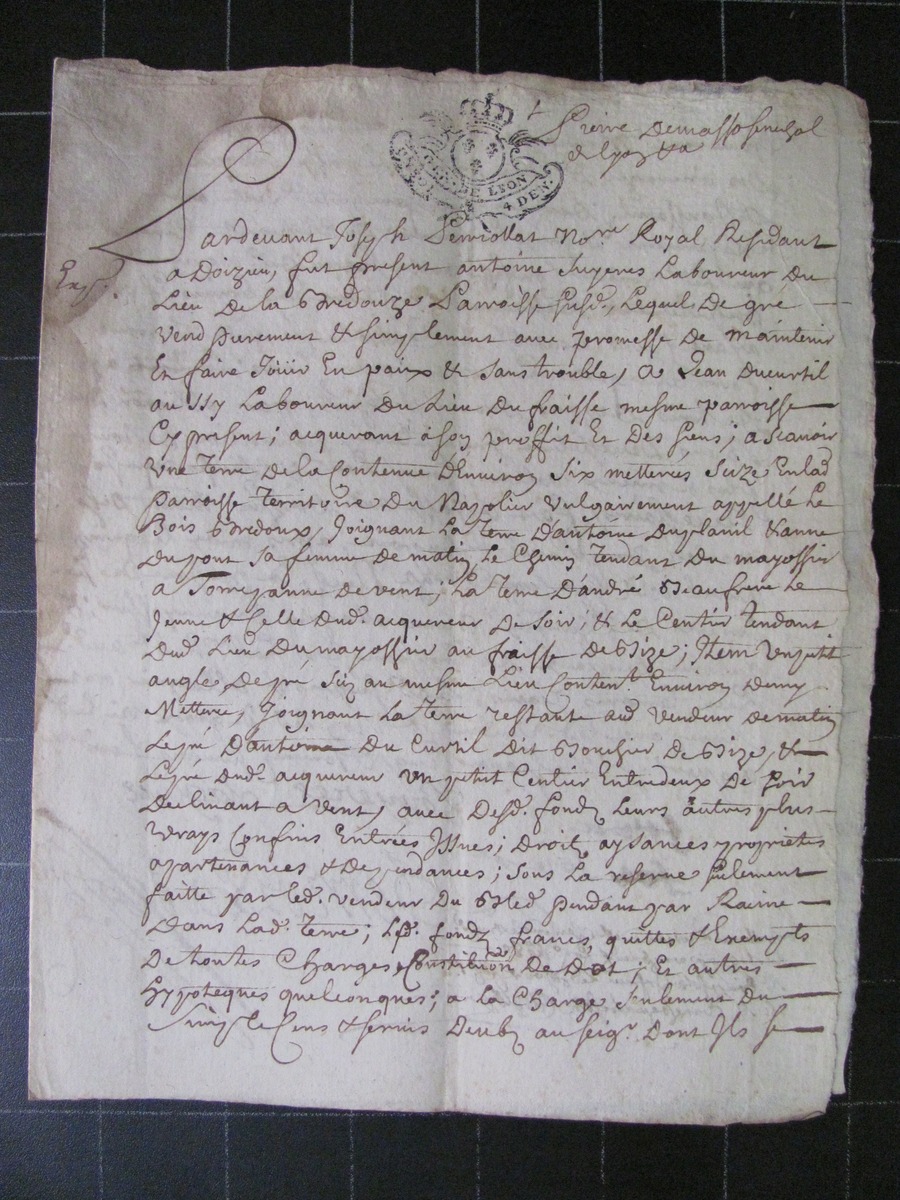 Pierre Demasso senechal
de lyon &a
GEN. DE LYON
4 DEN.
Pardevant Joseph Perriollat Nore. Royal Residant
Exp.
a Doizieu, fut present antoine Juyeres Laboureur du
Lieu De la Bredouze Parroisse susd., Lequel De gré
vend purement & simplement avec promesse De maintenir
Et faire Joüir En paix & sans trouble, a Jean Ducurtil
aussy Laboureur Du Lieu Du fraisse mesme parroisse
Cy present; acquerant a son proffit Et Des siens; a scavoir
Une terre De la Contenue D'Environ six metterées size En lad
parroisse territoire Du Vulgairement appellé Le
Bois Bredoux, Joignant La terre D'antoine & anne
Dupont sa femme De matin, Le Chemin tendant Du mayossier
a De vent; La terre D'andré Beaufrere Le
Jeune & Celle Dud. acquereur De soir, & Le Centier tendant
Dud Lieu Du mayossier au fraisse De Bize; Item Un petit
angle De pré siz au mesme Lieu Content. Environ Demy
Metterée, Joignant La terre restante aud Vendeur De matin
Le pré D'antoine Du Curtil Dit De Bize, &
Le pré Dud. acquereur un petit Centier Entredeux De soir
Declinant a vent, avec Desd. fondz Leurs autres plus
vrays Confins Entrées Issues; Droit, aysances proprietés
apartenances & Dependances; sous La reserve seulement
faitte par led. vendeur Du Bled pendant par Racine
Dans Lad. terre; Lesd. fondz francs, quittes & Exempts
De touttes Charges Constitution De Dot; Et autres
hypoteques quelconques; a La Charge seulement Du
simple Cens & servis Deubz au seigr. Dont Ils se